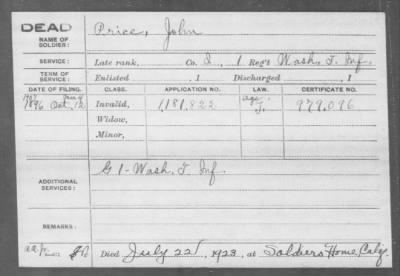 DEAD
NAME OF SOLDIER: Price, John
SERVICE: Late rank, Co. I, 1 Reg't Wash. T. Inf.
TERM OF SERVICE: Enlisted , 1 Discharged , 1
DATE OF FILING. CLASS. APPLICATION NO. LAW. CERTIFICATE NO.
1896 Oct. 12 Invalid, 1,181,822 J. 979,096
Widow,
Minor,
ADDITIONAL SERVICES: G 1- Wash. T. Inf
REMARKS:
Died July 22, 1923, at Soldiers Home, Calif.